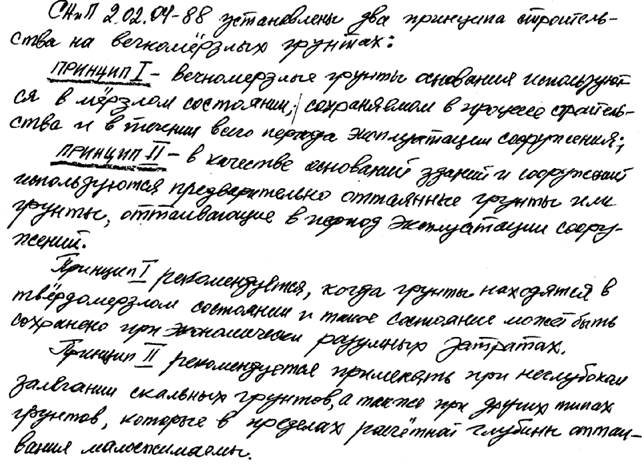 СНиП 2.02.04-88 установлены два принципа строитель-
ства на вечномёрзлых грунтах:
ПРИНЦИП I - вечномерзлые грунты основания используют-
ся в мёрзлом состоянии, сохраняемом в процессе строитель-
ства и в течении всего периода эксплуатации сооружения;
ПРИНЦИП II - в качестве оснований зданий и сооружений
используются предварительно оттаянные грунты или
грунты, оттаивающие в период эксплуатации соору-
жений.
Принцип I рекомендуется, когда грунты находятся в
твёрдомерзлом состоянии и такое состояние может быть
сохранено при экономически разумных затратах.
Принцип II рекомендуется применять при неглубоком
залегании скальных грунтов, а также при других типах
грунтов, которые в пределах расчётной глубины оттаи-
вания малосжимаемы.